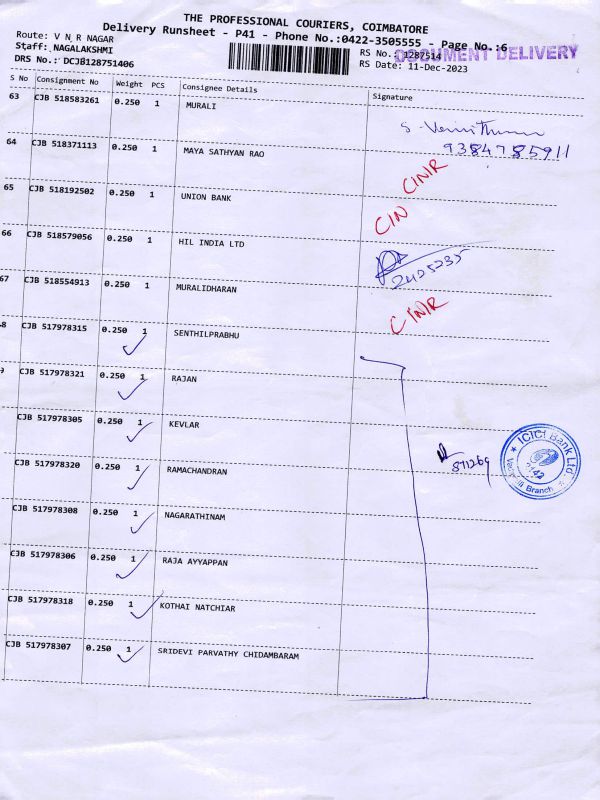 THE PROFESSIONAL COURIERS, COIMBATORE
Delivery Runsheet - P41 - Phone No.:0422-3505555 - Page No.:6
Route: V N R NAGAR
Staff: NAGALAKSHMI
DRS No.: DCJB128751406
RS No.: 1287514
DOCUMENT DELIVERY
RS Date: 11-Dec-2023
S No Consignment No Weight PCS Consignee Details Signature
63 CJB 518583261 0.250 1 MURALI
9384785911
64 CJB 518371113 0.250 1 MAYA SATHYAN RAO CINR
65 CJB 518192502 0.250 1 UNION BANK CIN
66 CJB 518579056 0.250 1 HIL INDIA LTD 2425235
67 CJB 518554913 0.250 1 MURALIDHARAN CINR
8 CJB 517978315 0.250 1 SENTHILPRABHU
9 CJB 517978321 0.250 1 RAJAN
CJB 517978305 0.250 1 KEVLAR
CJB 517978320 0.250 1 RAMACHANDRAN 871269
ICICI Bank Ltd
Branch
CJB 517978308 0.250 1 NAGARATHINAM
CJB 517978306 0.250 1 RAJA AYYAPPAN
CJB 517978318 0.250 1 KOTHAI NATCHIAR
CJB 517978307 0.250 1 SRIDEVI PARVATHY CHIDAMBARAM